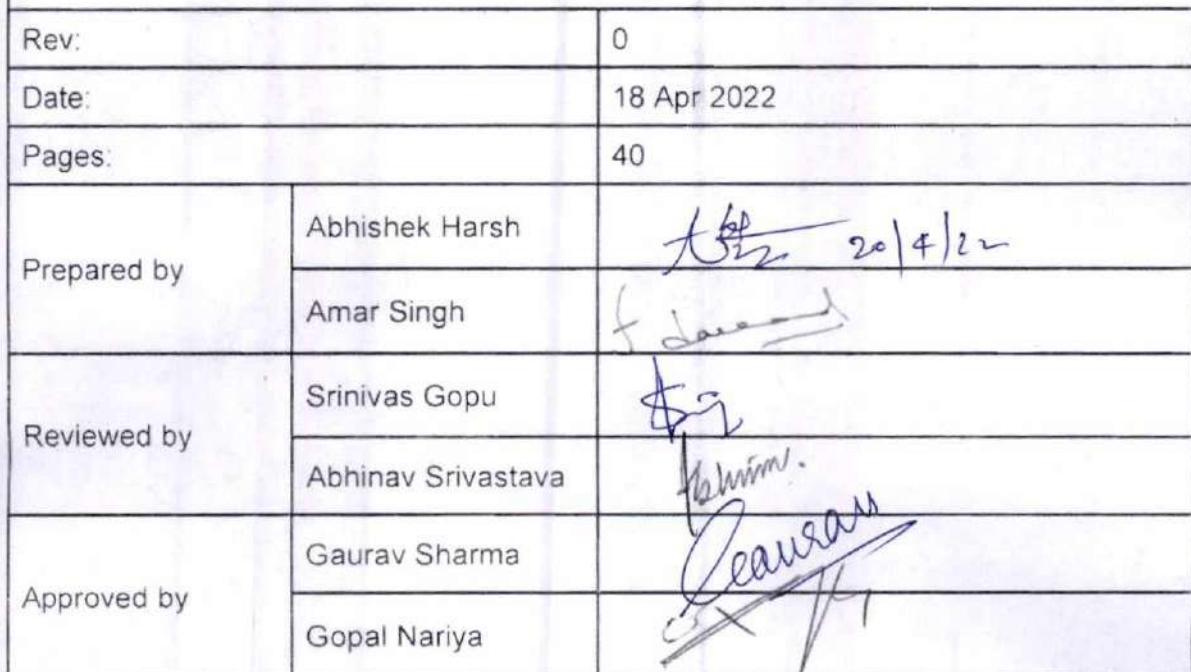 Rev: 0
Date: 18 Apr 2022
Pages: 40
Prepared by
Abhishek Harsh 20/4/22
Amar Singh
Reviewed by
Srinivas Gopu
Abhinav Srivastava
Approved by
Gaurav Sharma Gaurav
Gopal Nariya